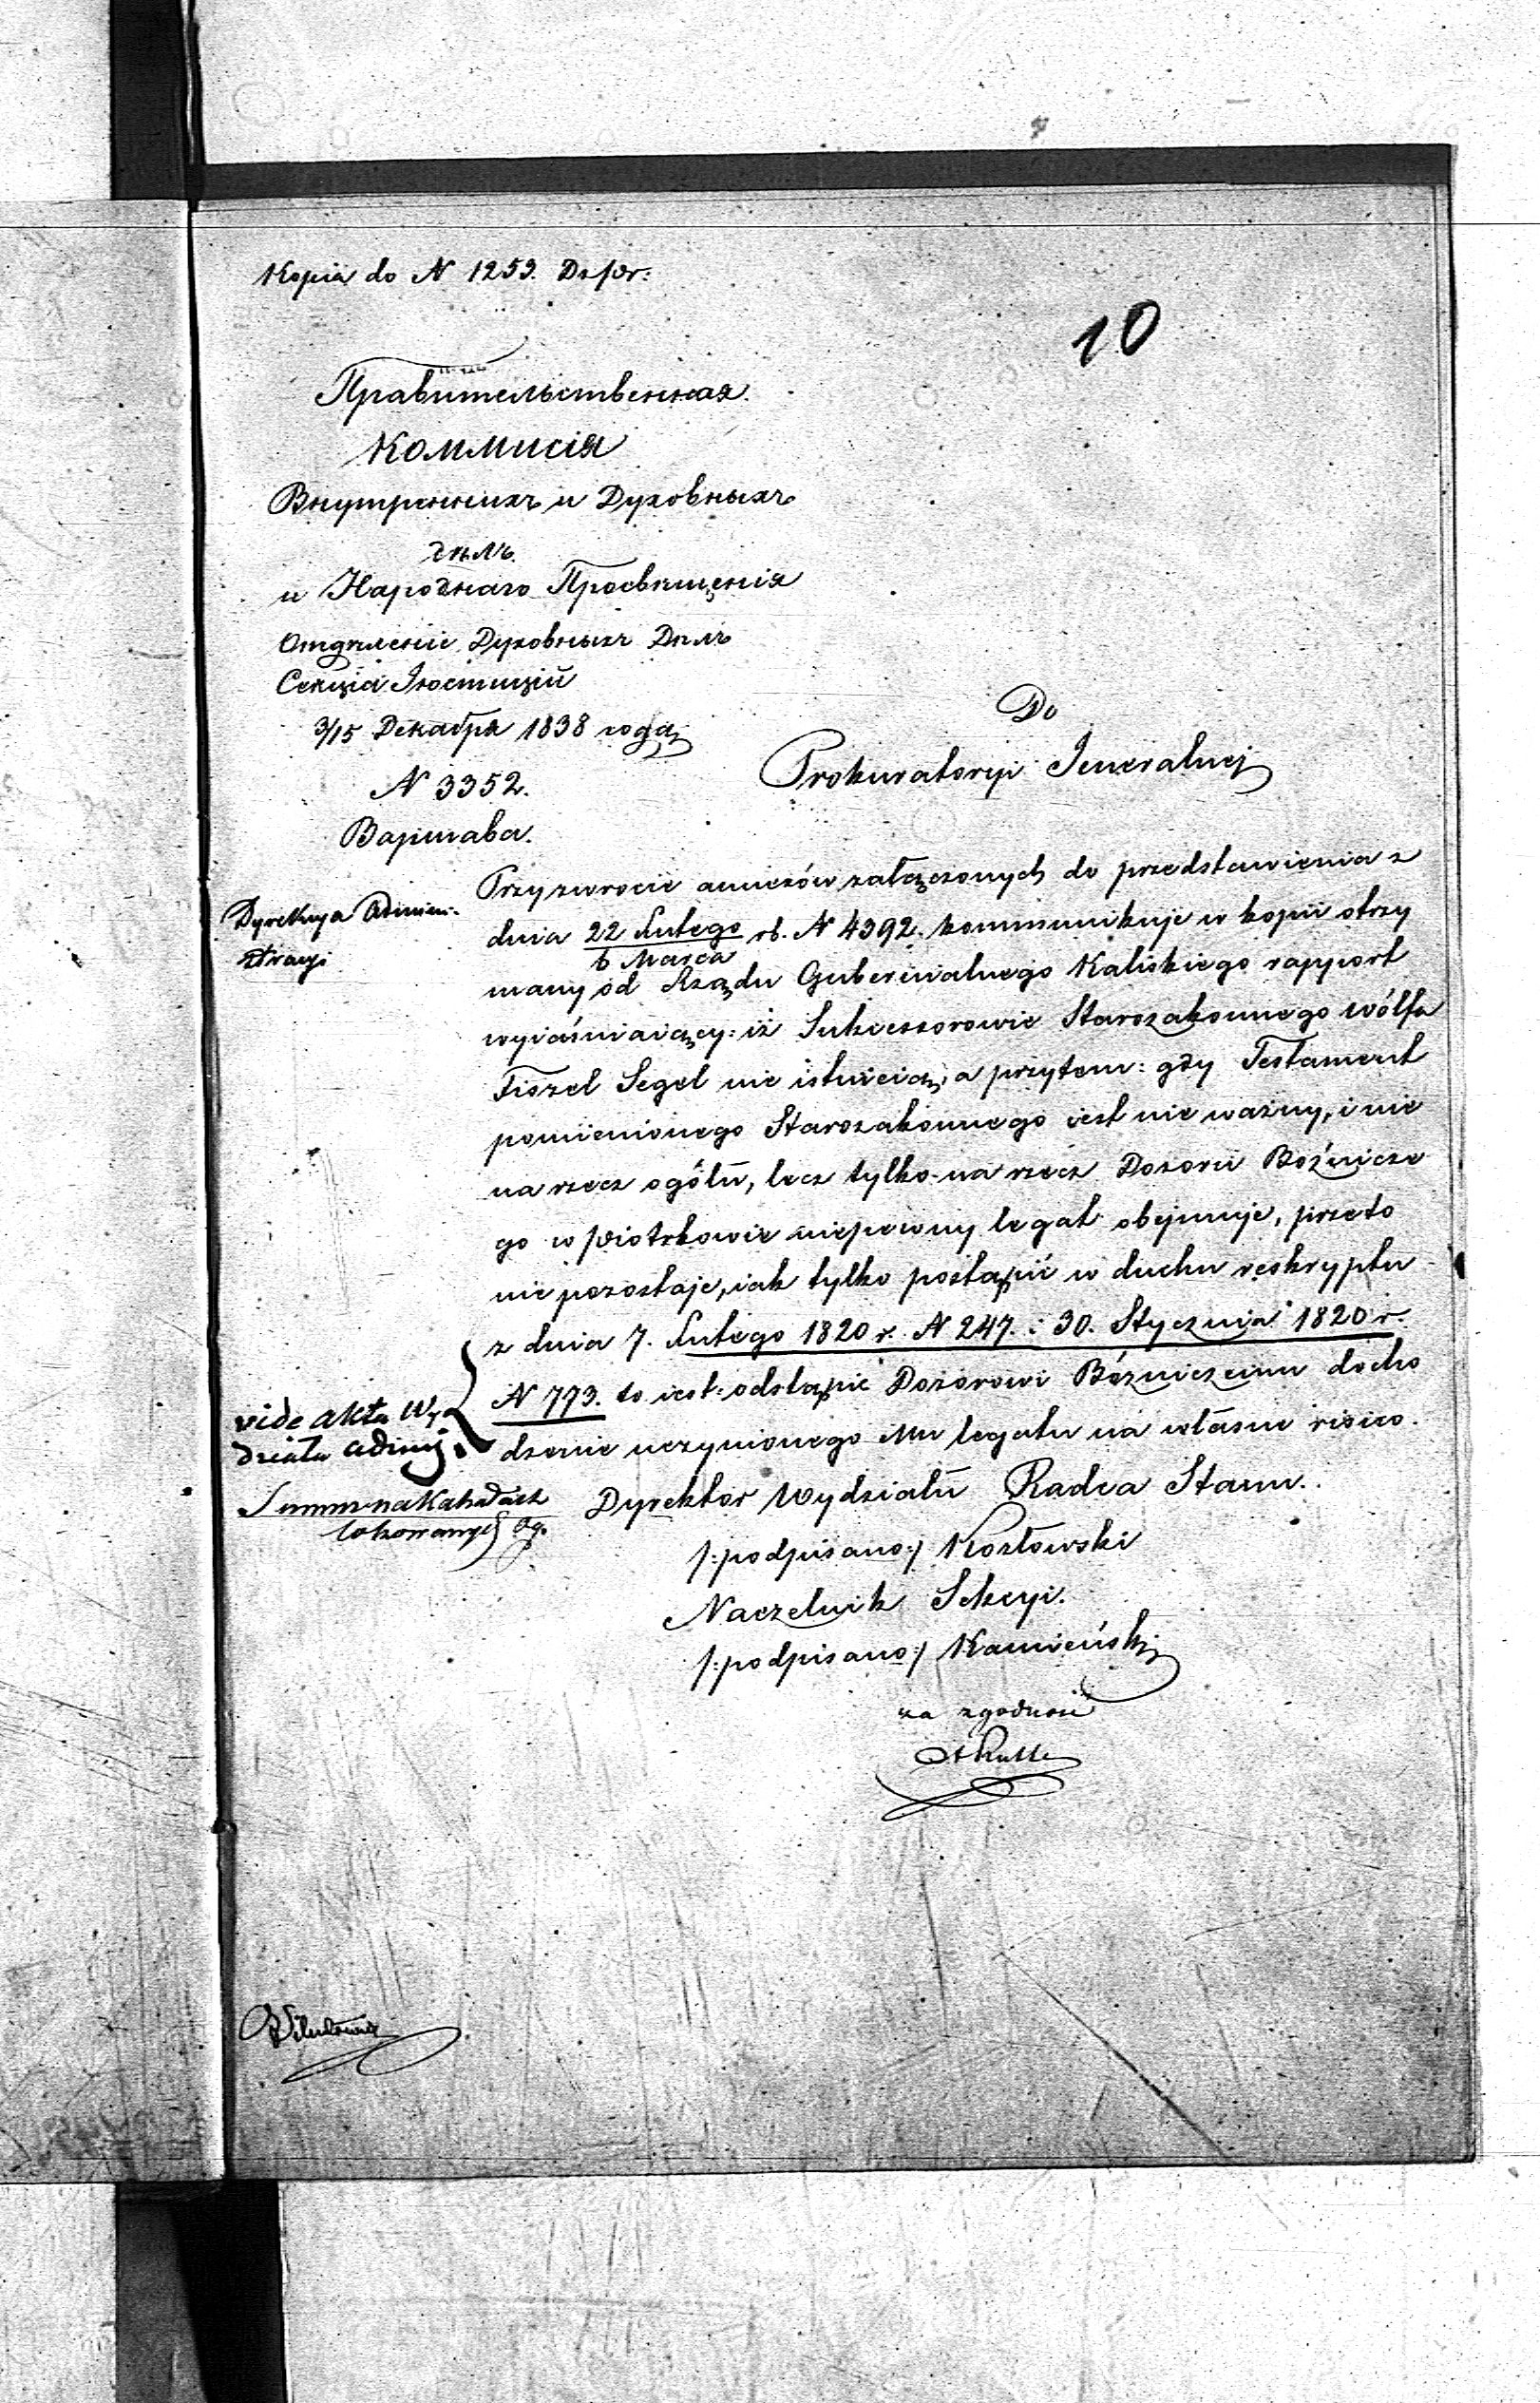 Kopia do N 1253. D. spr:
10
Правительственная
Коммисія
Внутреннихъ и Духовныхъ
дѣлъ
и Народнаго Просвѣщенія
Отдѣленіе Духовныхъ Дѣлъ
Секція Юстицій
3/15 Декабря 1838 года
N 3352.
Варшава.
Do
Prokuratoryi Jeneralnej
Dyrekcya Admini-
stracyi
Przy zwrocie annexów załączonych do przedstawienia z
dnia 22 Lutego rb. N 4392. kommunikuje w kopii otrzy
6 Marca
many od Rządu Guberni­alnego Kaliskiego rapport
wyiaśniaiący: iż Sukcessorowie Starozakonnego Wólfa
Fiszel Segel nie istnieią, a przytem: gdy Testament
pomienionego Starozakonnego iest nie ważny, i nie
na rzecz ogółu, lecz tylko na rzecz Dozoru Boźnicze
go w Piotrkowie niepewny legat obejmuje, przeto
nie pozostaje, iak tylko postąpić w duchu reskryptu
z dnia 7. Lutego 1820 r. N 247. i 30. Stycznia 1820 r.
N 773. to iest: odstąpić Dozorowi Bóżniczemu docho
dzenie uczynionego Mu legatu na własne risico.
vide akta Wy
działu Admij.
Summ na Kahałach
lokowanych
Dyrektor Wydziału Radca Stanu.
/:podpisano:/ Kozłowski
Naczelnik Sekcyi.
/:podpisano:/ Kamieński
za zgodność